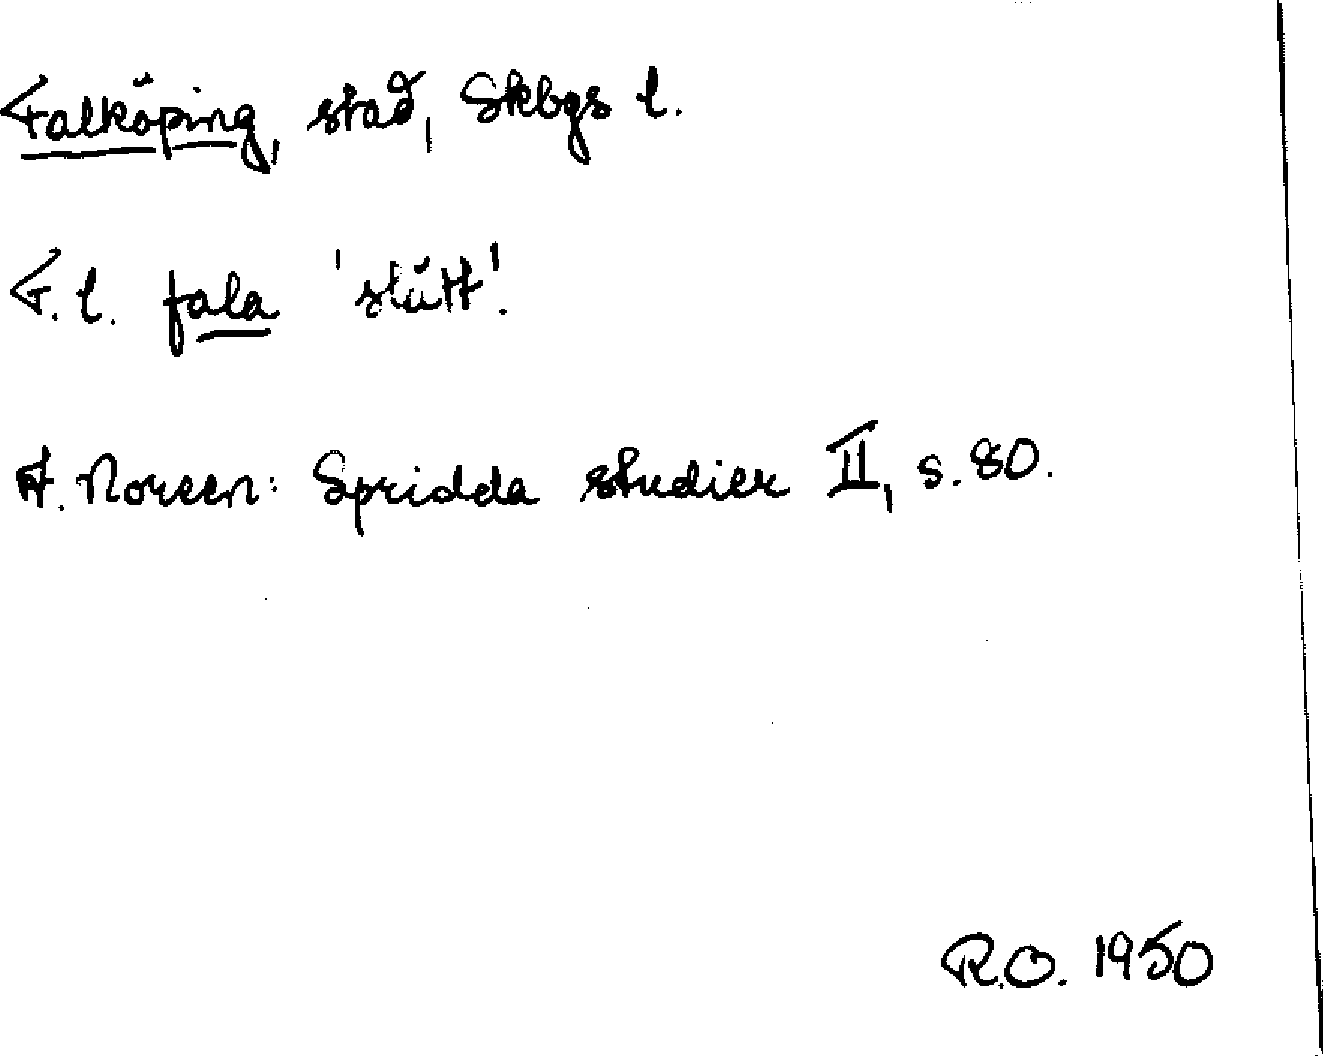 Falköping, stad, Skbgs l.
F. l. fala 'slätt'.
A. Noreen: Spridda studier II, s. 80.
R.O. 1950